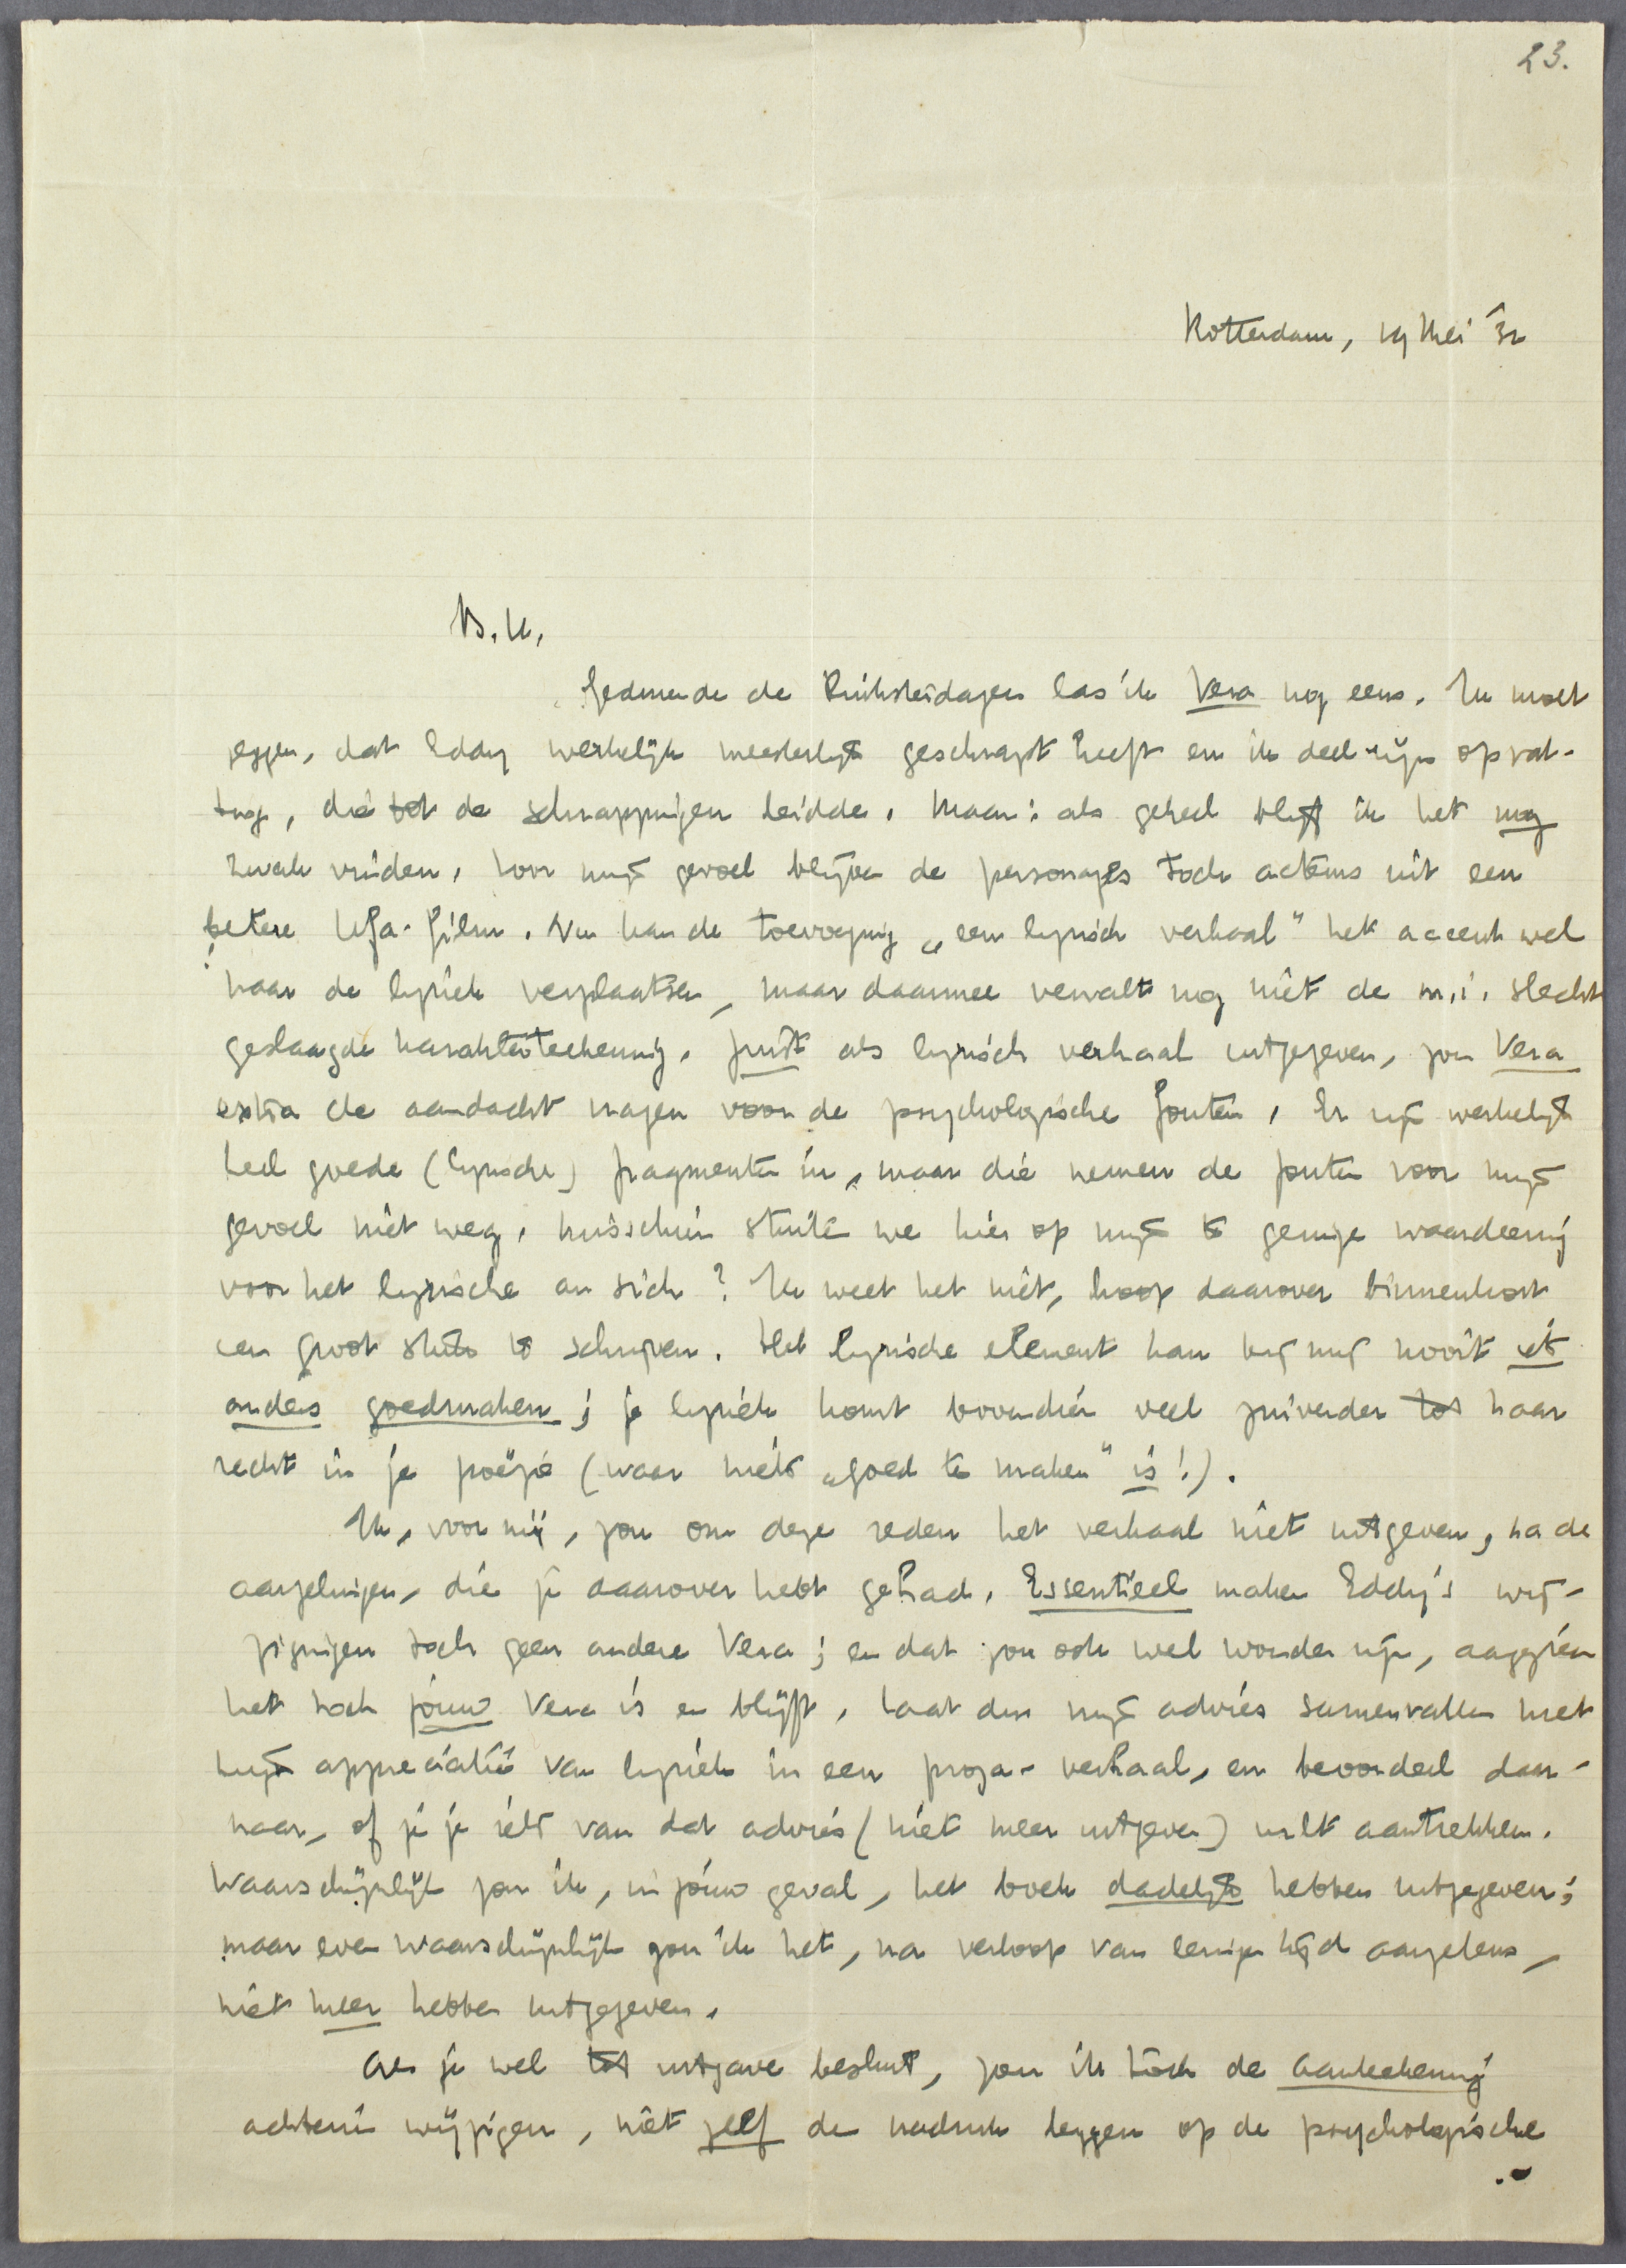 23.
Rotterdam, 19 Mei '32
B.H.
Gedurende de Pinksterdagen las ik Vera nog eens. Ik moet
zeggen, dat Eddy werkelijk meesterlijk geschrapt heeft en ik deel zijn opvat-
ting, die tot de schrappingen leidde. Maar: als geheel blijf ik het nog
zwak vinden. Voor mijn gevoel blijven de personages toch acteurs uit een
betere Ufa-film. Nu kan de toevoeging „een lyrisch verhaal" het accent wel
naar de lyriek verplaatsen, maar daarmee vervalt nog niet de m.i. slecht
geslaagde karaktertekening. Juist als lyrisch verhaal uitgegeven, zou Vera
extra de aandacht vragen voor de psychologische fouten. Er zijn werkelijk
heel goede (lyrische) fragmenten in, maar die nemen de fouten voor mijn
gevoel niet weg. Misschien stuiten we hier op mijn te geringe waardeering
voor het lyrische an sich? Ik weet het niet, hoop daarover binnenkort
een groot stuk te schrijven. Het lyrische element kan bij mij nooit iets
anders goedmaken; je lyriek komt bovendien veel zuiverder tot haar
recht in je poëzie (waar niets „goed te maken" is!).
Ik, voor mij, zou om deze reden het verhaal niet uitgeven, na de
aarzelingen, die je daarover hebt gehad. Essentieel maken Eddy's wij-
zigingen toch geen andere Vera; en dat zou ook wel wonder zijn, aangezien
het toch jóuw Vera is en blijft. Laat dus mijn advies samenvallen met
mijn appreciatie van lyriek in een proza-verhaal, en beoordeel daar-
naar, of je je iets van dat advies (niet meer uitgeven) wilt aantrekken.
Waarschijnlijk zou ik, in jóuw geval, het boek dadelijk hebben uitgegeven;
maar even waarschijnlijk zou ik het, na verloop van eenige tijd aarzelens,
niet meer hebben uitgegeven.
Als je wel tot uitgave besluit, zou ik tóch de aanteekening
achterin wijzigen, niet zelf de nadruk leggen op de psychologische